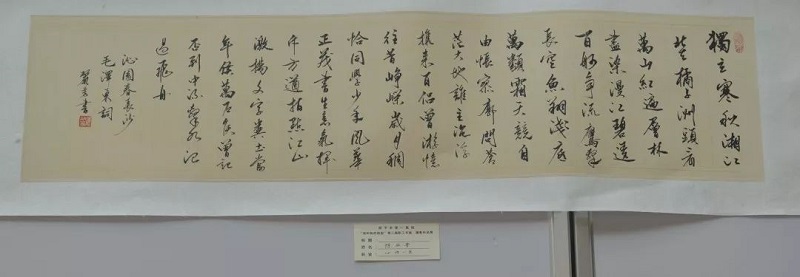 獨立寒秋湘江
北去橘子洲頭看
萬山紅遍層林
盡染漫江碧透
百舸爭流鷹擊
長空魚翔淺底
萬類霜天競自
由悵寥廓問蒼
茫大地誰主沉浮
攜來百侶曾遊憶
往昔崢嶸歲月稠
恰同學少年風華
正茂書生意氣揮
斥方遒指點江山
激揚文字糞土當
年侯萬戶侯曾記
否到中流擊水浪
遏飛舟
沁園春長沙
毛澤東詞
書